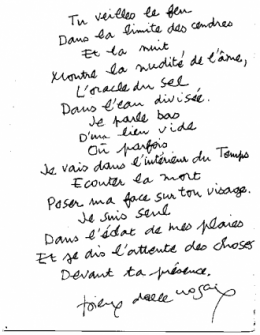 Tu veilles le feu
Dans la limite des cendres
Et la nuit
Montre la nudité de l'âme,
L'oracle du sel
Dans l'eau divisée.
Je parle bas
D'un lieu vide
Où parfois
Je vais dans l'intérieur du Temps
Ecouter la mort
Poser ma face sur ton visage.
Je suis seul
Dans l'éclat de mes plaies
Et je dis l'attente des choses
Devant ta présence.